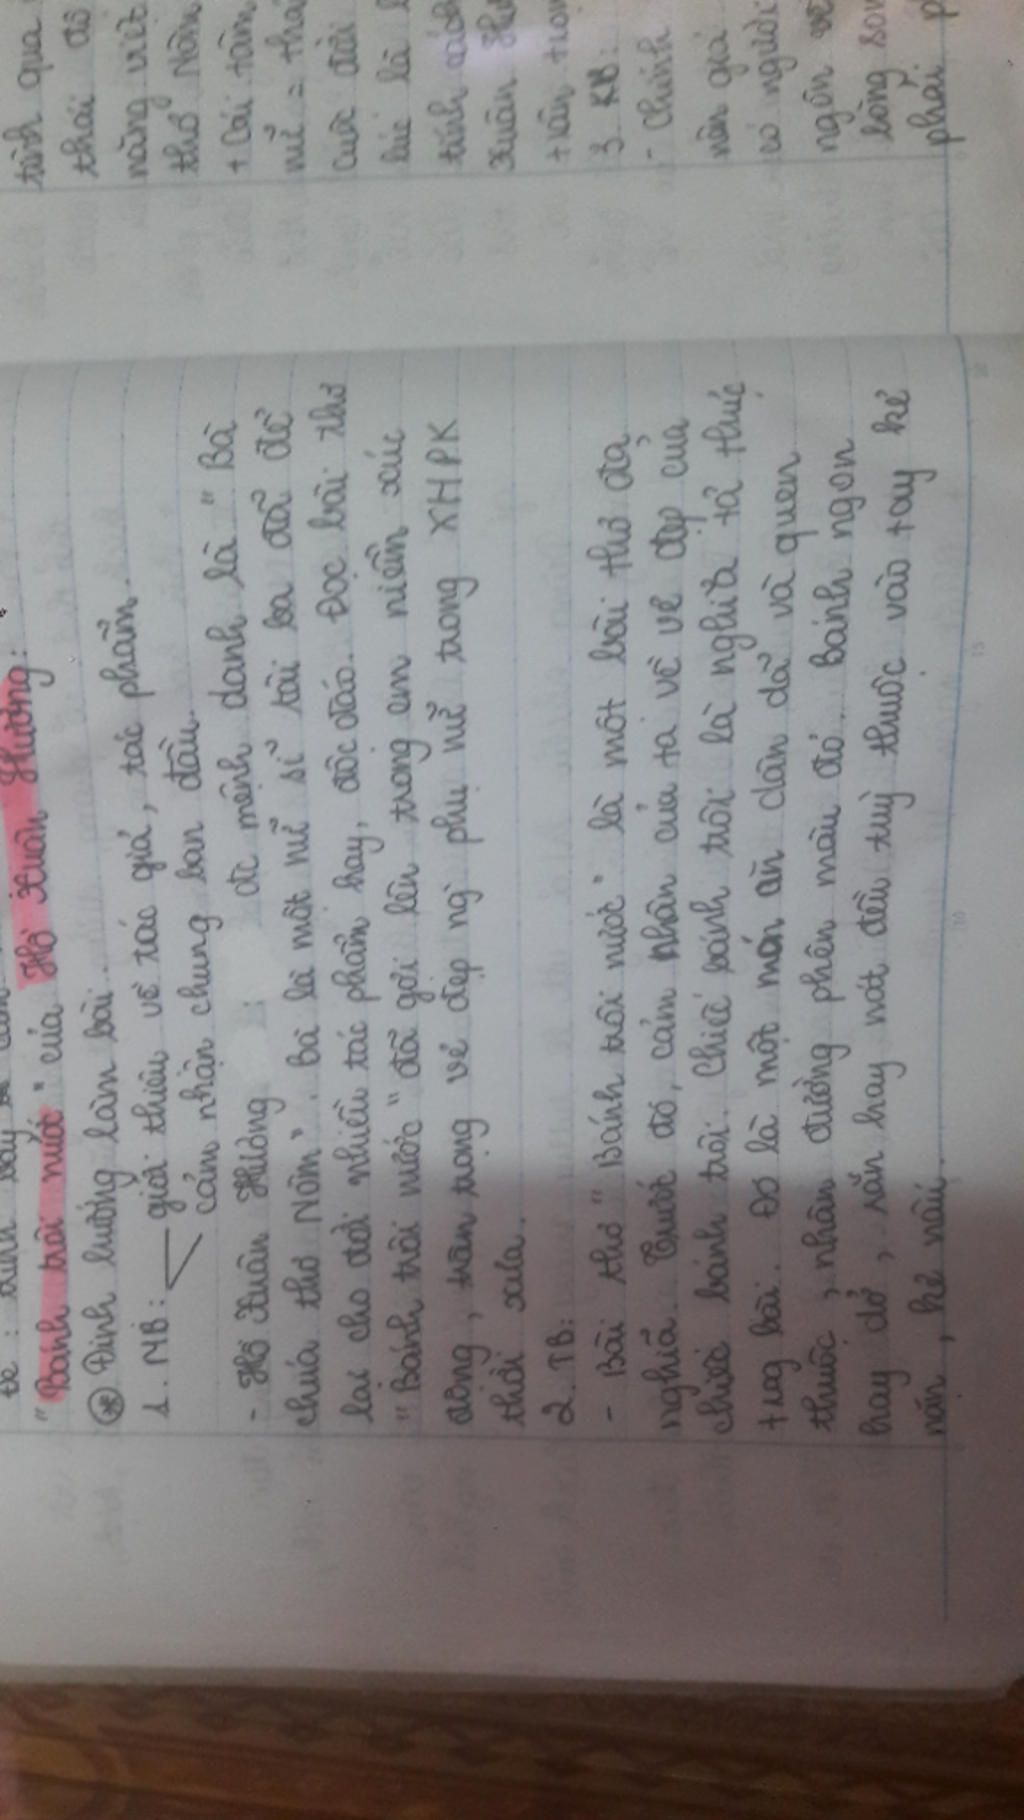 "Bánh trôi nước" của Hồ Xuân Hương:
⊛ Định hướng làm bài.
1. MB: giới thiệu về tác giả, tác phẩm.
cảm nhận chung ban đầu.
- Hồ Xuân Hương : đc mệnh danh là "Bà
chúa thơ Nôm". Bà là một nữ sĩ tài ba đã để
lại cho đời nhiều tác phẩm hay, độc đáo. Đọc bài thơ
"Bánh trôi nước" đã gợi lên trong em niềm xúc
động, trân trọng vẻ đẹp ng` phụ nữ trong XHPK
thời xưa.
2. TB:
- Bài thơ "Bánh trôi nước" là một bài thơ đa
nghĩa. Trước đó, cảm nhân của ta về vẻ đẹp của
chiếc bánh trôi. Chiếc bánh trôi là nghĩa tả thực
trog bài. Đó là một món ăn dân dã và quen
thuộc, nhân đường phên màu đỏ. Bánh ngon
hay dở, rắn hay nát đều tuỳ thuộc vào tay kẻ
nặn, kẻ nấu.
tình qua
thái độ
năng viết
thơ Nôm
+ Cái tâm
nữ = thái
cuộc đời
lúc là
tính cách
Xuân Hư
+ trân trọn
3. KB:
- Chính
nên giá
có người
ngôn về
lòng son
phải p